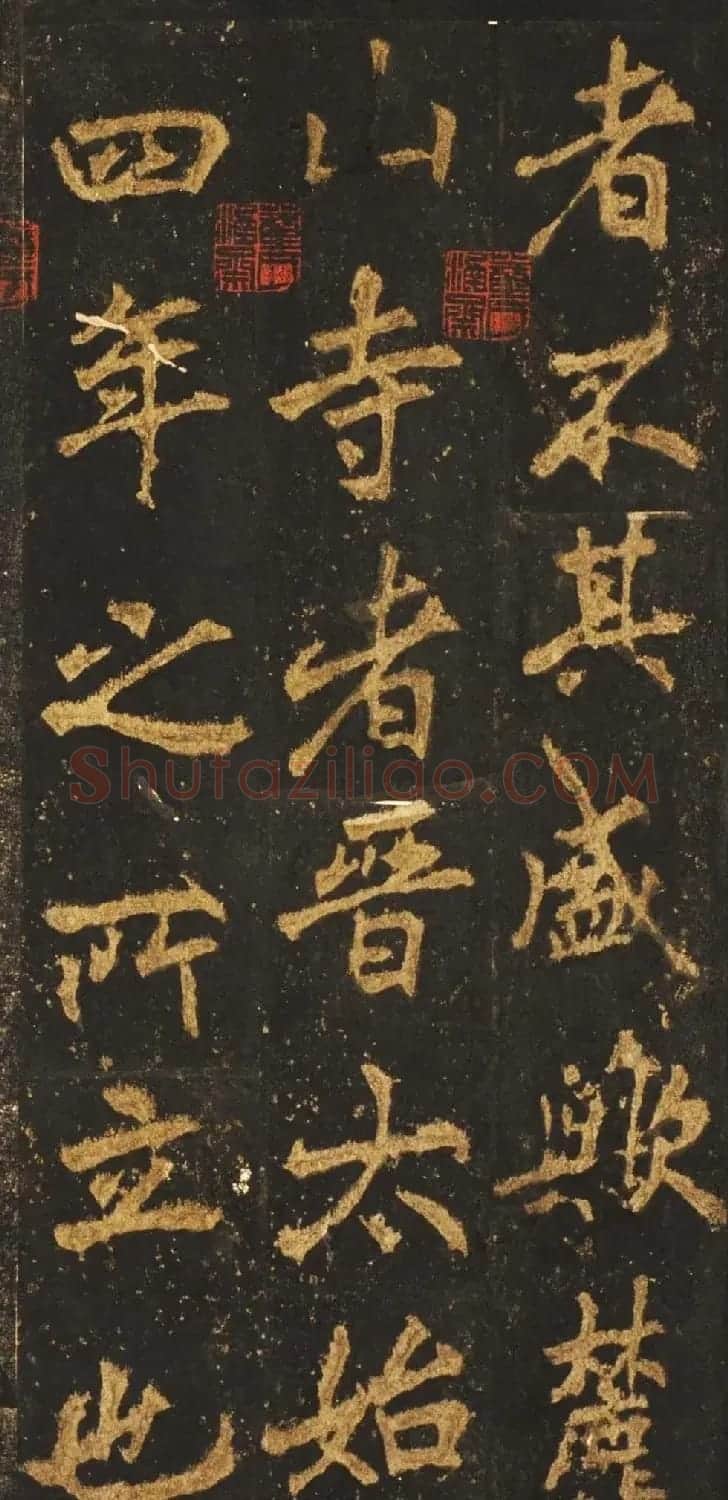 者不其盛歟麓
山寺者晉太始
四年之所立也
Shufaziliao.COM